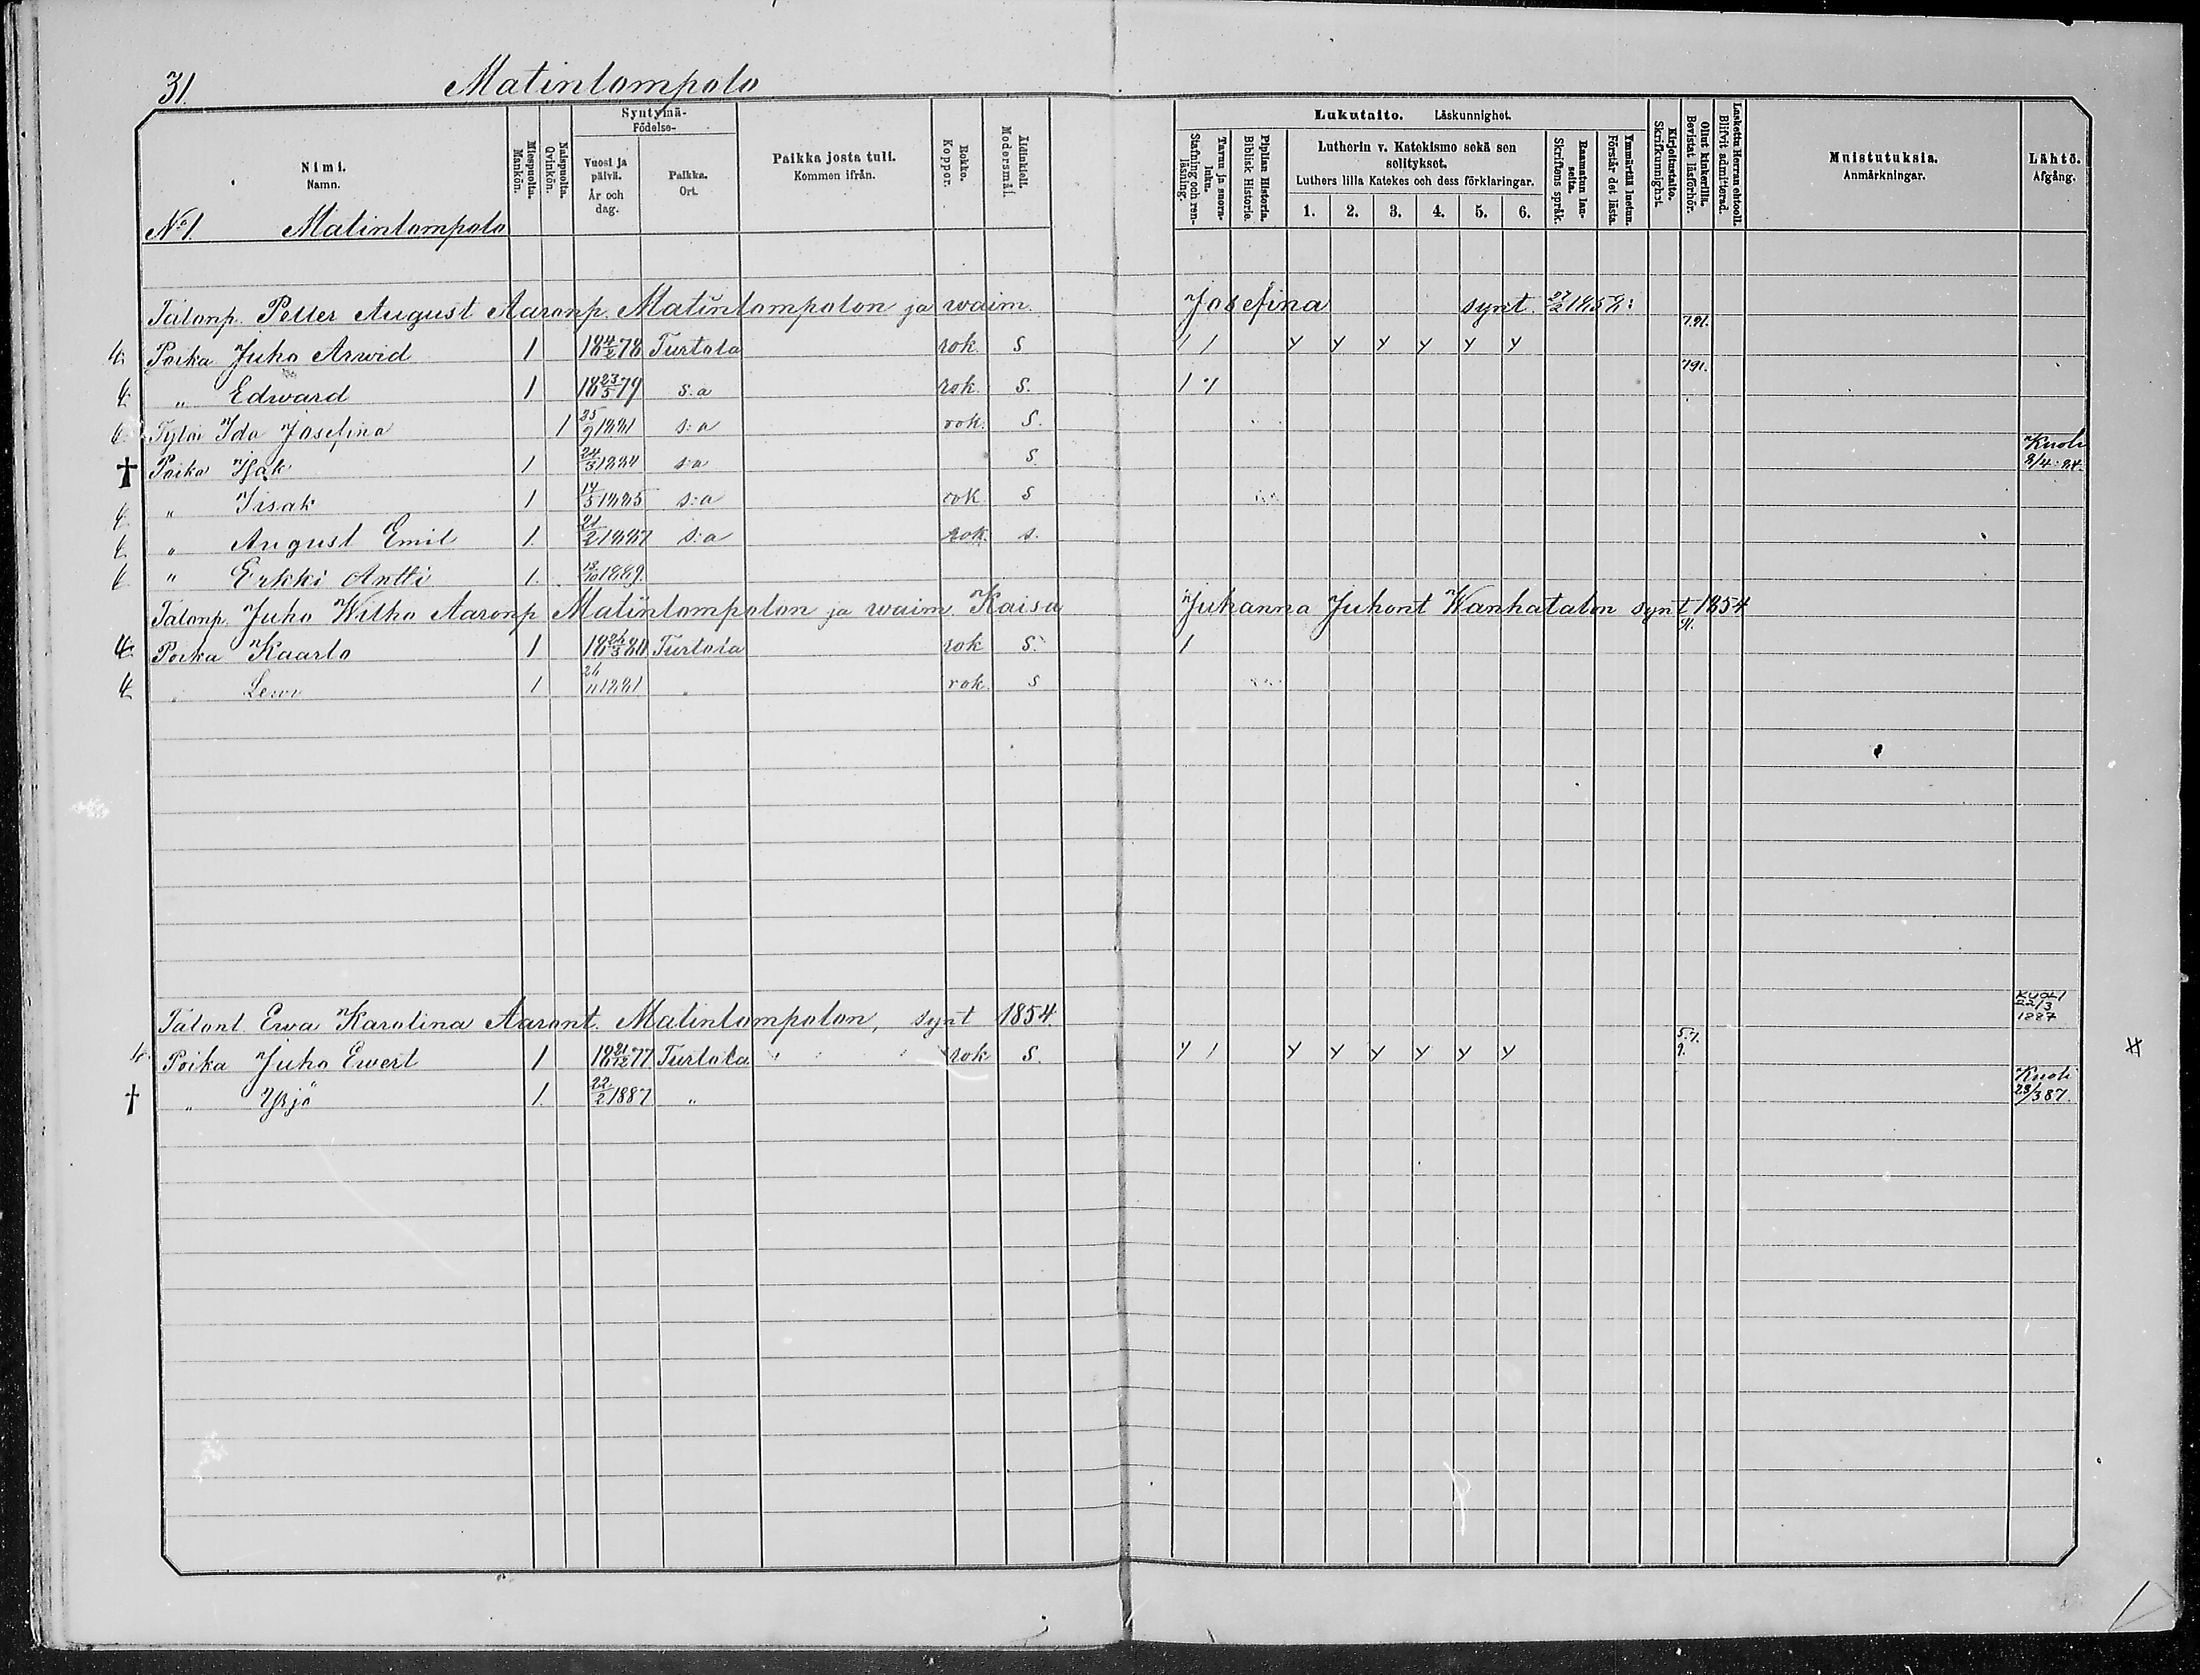 31. Matinlompolo
Nimi. Namn.
Miespuolia. Mankön.
Naispuolia. Qvinkön.
Syntymä- Födelse-
Vuosi ja päivä. År och dag.
Paikka. Ort.
Paikka josta tuli. Kommen ifrån.
Rokko. Koppor.
Äidinkieli. Modersmål.
Lukutaito. Läskunnighet.
Tavuu ja suora-luku. Stafning och ren-läsning.
Piplian Historia. Biblisk Historie.
Lutherin v. Katekismo sekä sen selitykset.
Luthers lilla Katekes och dess förklaringar.
1. 2. 3. 4. 5. 6.
Raamatun lauseita. Skriftens språk.
Ymmärtää luetun. Förstår det lästa.
Kirjoitustaito. Skrifkunnighet.
Ollut kinkerillä. Bevistat läsförhör.
Laskettu Herran ehtooll. Blifvit admitterad.
Muistutuksia. Anmärkningar.
Lähtö. Afgång.
No 1. Matinlompolo
Talonp. Petter August Aaronp. Matinlompolon ja waim. Josefina synt. 27/2 1858:
Poika Juho Arwid 1 18 4/2 78 Turtola rok. s 1 1 y y y y y y 7.91.
„ Edward 1 18 23/5 79 s:a rok. s. 1 y 791.
Tytär Ida Josefina 1 25/9 1881 s:a rok. s.
† Poika Isak 1 24/3 1884 s:a s. Kuoli 2/4 84
„ Iisak 1 17/5 1885 s:a rok s
„ August Emil 1. 21/2 1887 s:a rok. s.
„ Erkki Antti 1. 18/10 1889.
Talonp. Juho Wilho Aaronp Matinlompolon ja waim. Kaisa Juhanna Juhont Wanhatalon synt 1854
Poika Kaarlo 1 18 26/3 80 Turtola rok s. 1 91.
„ Lewi 1 26/11 1881 „ rok. s
Talont. Ewa Karolina Aaront. Matinlompolon, synt 1854. Kuoli 22/3 1887
Poika Juho Ewert 1 18 21/12 77 Turtola rok s. y 1 y y y y y y
† „ Yrjö 1. 22/2 1887 „ Kuoli 28/3 87.